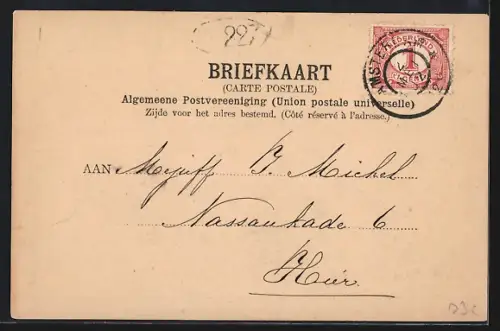 1
227
NEDERLAND
1
AMSTERDAM
BRIEFKAART
(CARTE POSTALE)
Algemeene Postvereeniging (Union postale universelle)
Zijde voor het adres bestemd. (Côté réservé à l'adresse.)
AAN Mejuff G. Michel
Nassaukade 6
Hier.